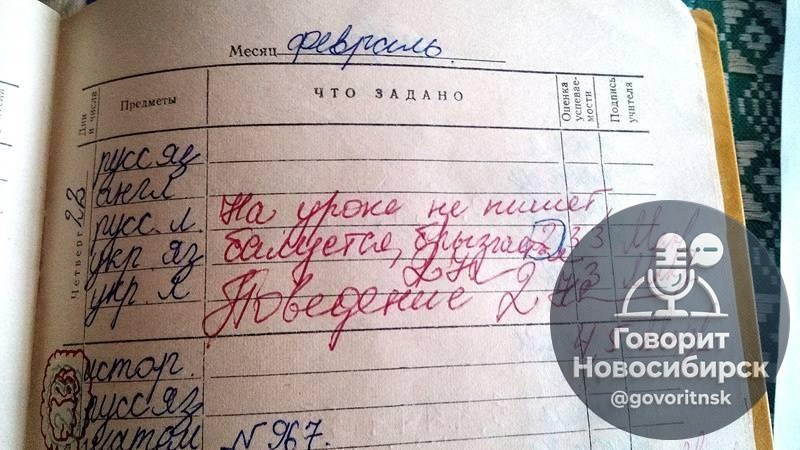 Месяц февраль.
Дни и числа
Предметы
ЧТО ЗАДАНО
Оценка успевае-мости
Подпись учителя
Четверг 22
русс яз
англ
русс. л. На уроке не пишет
укр яз балуется, брызгается 2 3 3
укр. л Поведение 2
истор.
русс яз
матом N 967.
Говорит
Новосибирск
@govoritnsk